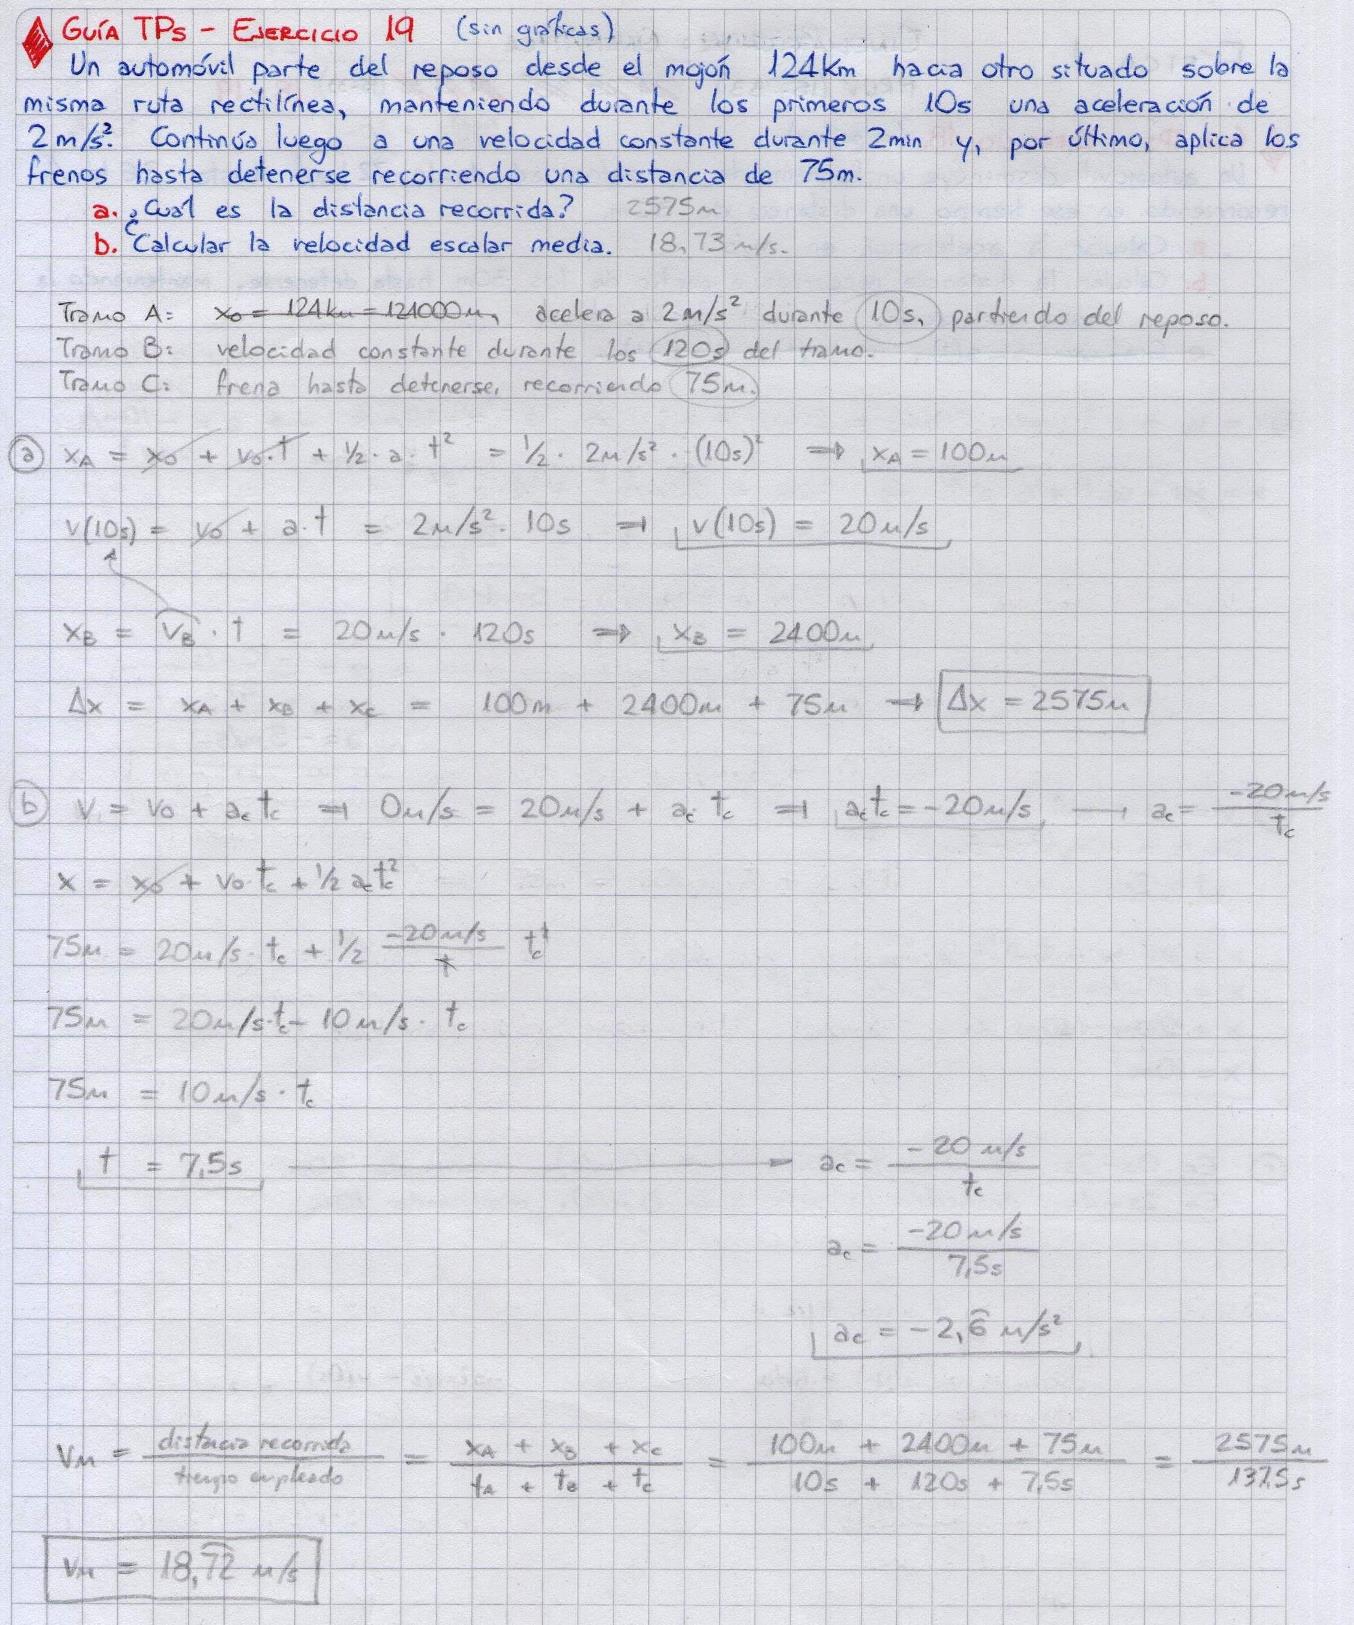 GUÍA TPs - EJERCICIO 19 (sin gráficas)
Un automóvil parte del reposo desde el mojón 124km hacia otro situado sobre la
misma ruta rectilínea, manteniendo durante los primeros 10s una aceleración de
2m/s². Continúa luego a una velocidad constante durante 2min y, por último, aplica los
frenos hasta detenerse recorriendo una distancia de 75m.
a. ¿Cuál es la distancia recorrida? 2575m
b. Calcular la velocidad escalar media. 18,73 m/s.
Tramo A: x₀ = 124km = 124000m, acelera a 2m/s² durante 10s, partiendo del reposo.
Tramo B: velocidad constante durante los 120s del tramo.
Tramo C: frena hasta detenerse, recorriendo 75m.
a xA = x₀ + v₀.t + 1/2 . a . t² = 1/2 . 2m/s² . (10s)² ⇒ xA = 100m
v(10s) = v₀ + a.t = 2m/s² . 10s ⇒ v(10s) = 20m/s
xB = vB . t = 20m/s . 120s ⇒ xB = 2400m
Δx = xA + xB + xC = 100m + 2400m + 75m → Δx = 2575m
b v = v₀ + ac tc ⇒ 0m/s = 20m/s + ac tc ⇒ actc = -20m/s → ac = -20m/s / tc
x = x₀ + v₀.tc + 1/2 actc²
75m = 20m/s . tc + 1/2 -20m/s / t tc²
75m = 20m/s.tc - 10m/s . tc
75m = 10m/s . tc
t = 7,5s → ac = -20 m/s / tc
ac = -20m/s / 7,5s
ac = -2,6̂ m/s²
vM = distancia recorrida / tiempo empleado = xA + xB + xC / tA + tB + tC = 100m + 2400m + 75m / 10s + 120s + 7,5s = 2575m / 137,5s
vM = 18,7͡2 m/s